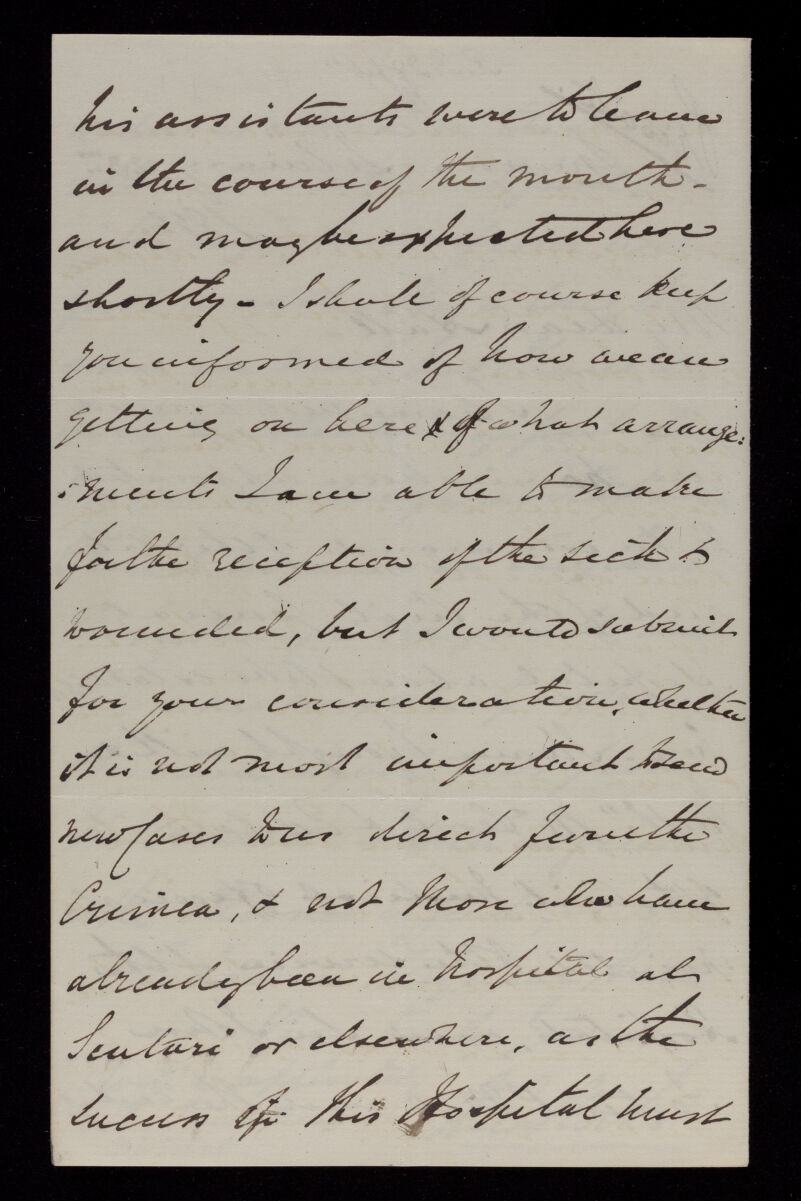 his assistants were to leave
in the course of the month -
and may be expected here
shortly - I shall of course keep
you informed of how we are
getting on here & of what arrange:
:ments I am able to make
for the reception of the sick &
wounded, but I would submit
for your consideration, whether
it is not most important to send
new Cases to us direct from the
Crimea, & not those who have
already been in Hospital at
Scutari or elsewhere, as the
success of this Hospital must